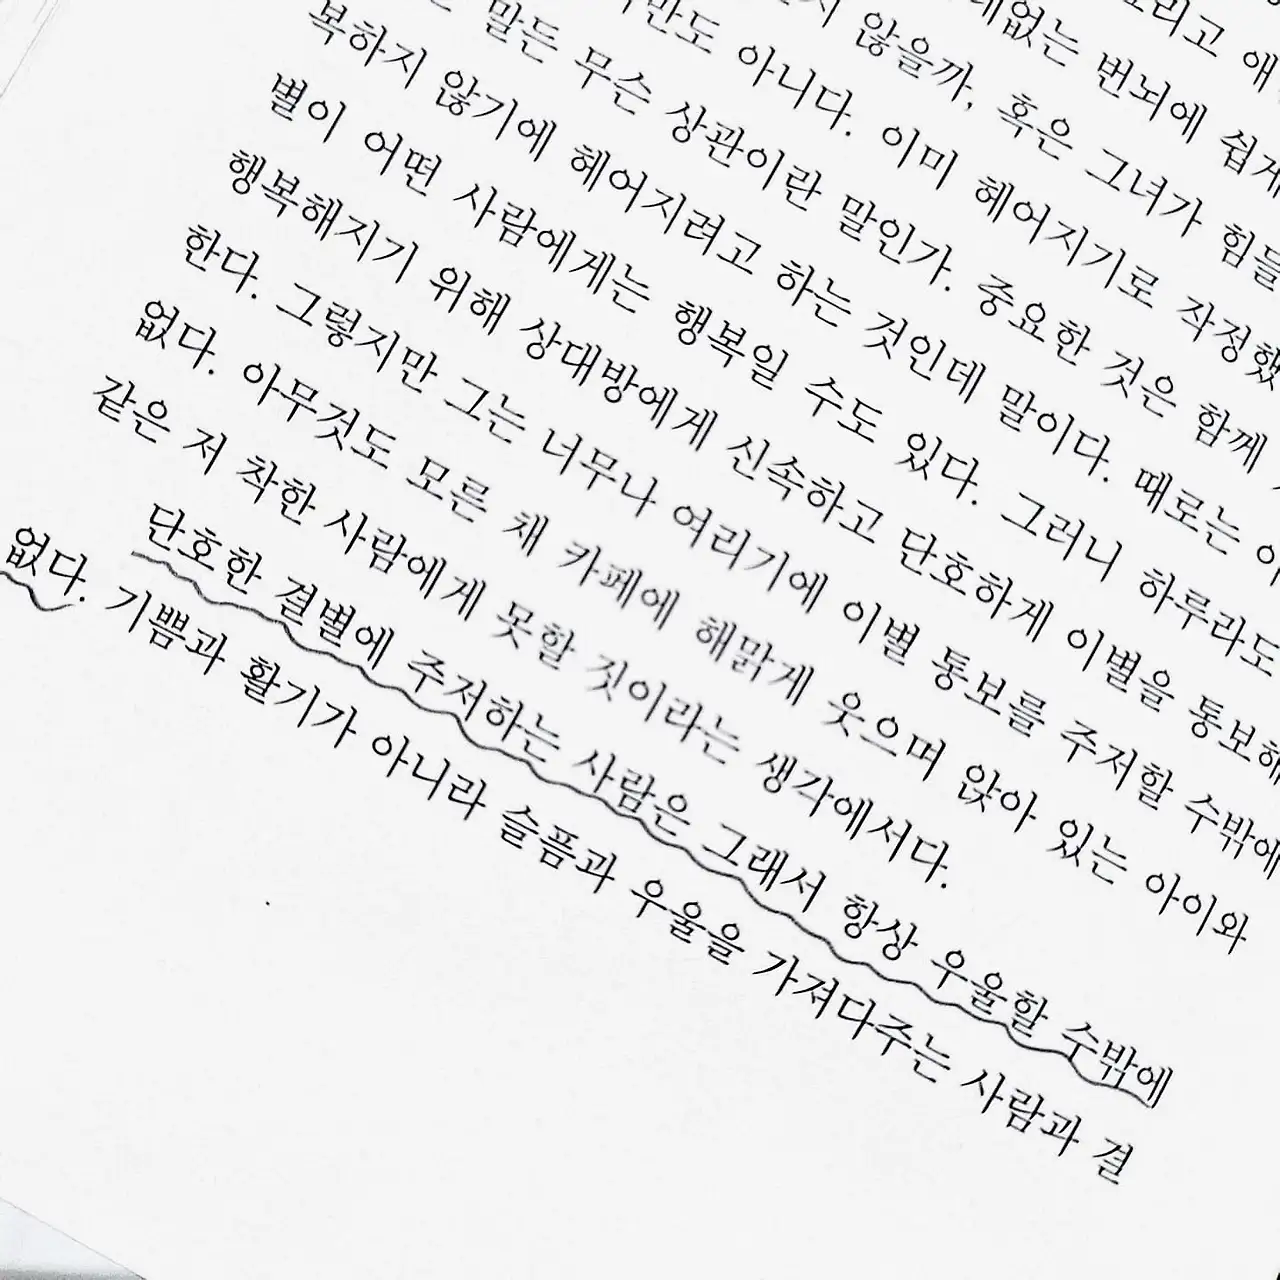 그리고 애
없는 번뇌에 쉽게
않을까, 혹은 그녀가 힘들
만도 아니다. 이미 헤어지기로 작정했
말든 무슨 상관이란 말인가. 중요한 것은 함께
복하지 않기에 헤어지려고 하는 것인데 말이다. 때로는 이
별이 어떤 사람에게는 행복일 수도 있다. 그러니 하루라도
행복해지기 위해 상대방에게 신속하고 단호하게 이별을 통보해
한다. 그렇지만 그는 너무나 여리기에 이별 통보를 주저할 수밖에
없다. 아무것도 모른 채 카페에 해맑게 웃으며 앉아 있는 아이와
같은 저 착한 사람에게 못할 짓이라는 생각에서다.
단호한 결별에 주저하는 사람은 그래서 항상 우울할 수밖에
없다. 기쁨과 활기가 아니라 슬픔과 우울을 가져다주는 사람과 결